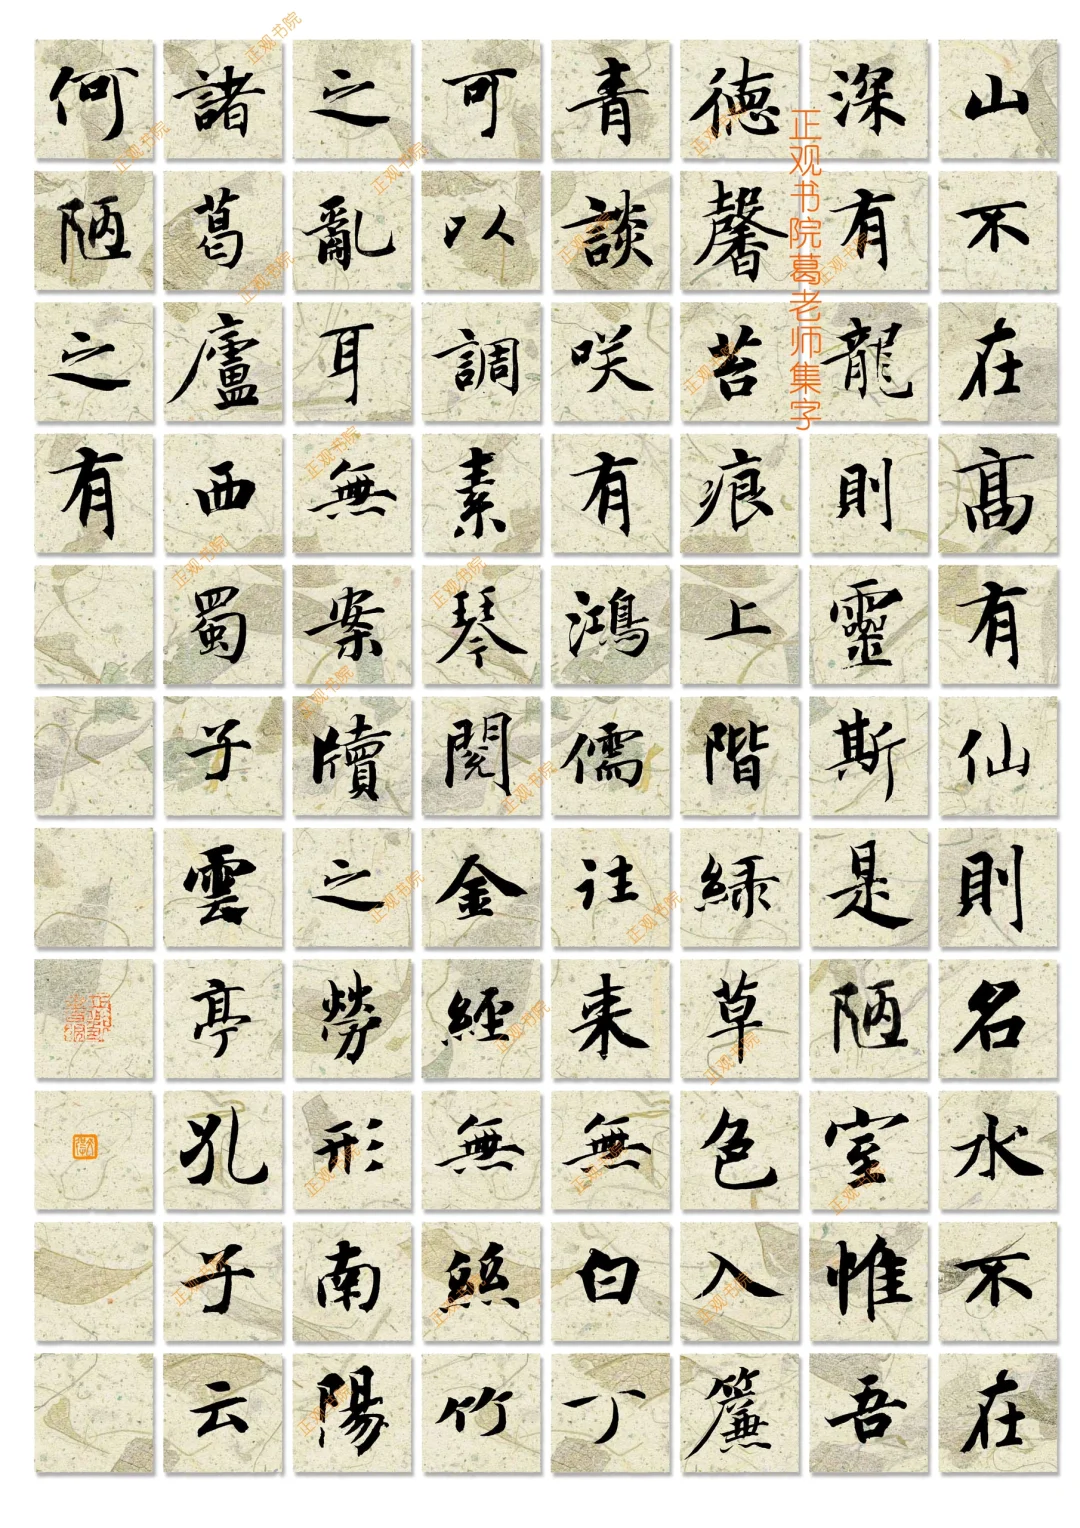 山不在髙有仙則名水不在
深有龍則靈斯是陋室惟吾
德馨苔痕上階緑草色入簾
青談咲有鴻儒往来無白丁
可以調素琴閱金經無絲竹
之亂耳無案牘之勞形南陽
諸葛廬西蜀子雲亭孔子云
何陋之有
正观书院葛老师集字
正观书院